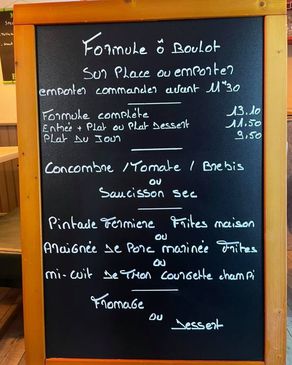 Formule ô Boulot
Sur Place ou emporter
emporter commander avant 11"30
Formule complète 13.10
Entrée + Plat ou Plat Dessert 11.50
Plat Du Jour 9.50
Concombre / Tomate / Brebis
ou
Saucisson sec
Pintade Fermiere Frites maison
ou
Araignée de Porc marinée Frites
ou
mi-cuit de Thon Courgette champi
Fromage
ou
Dessert